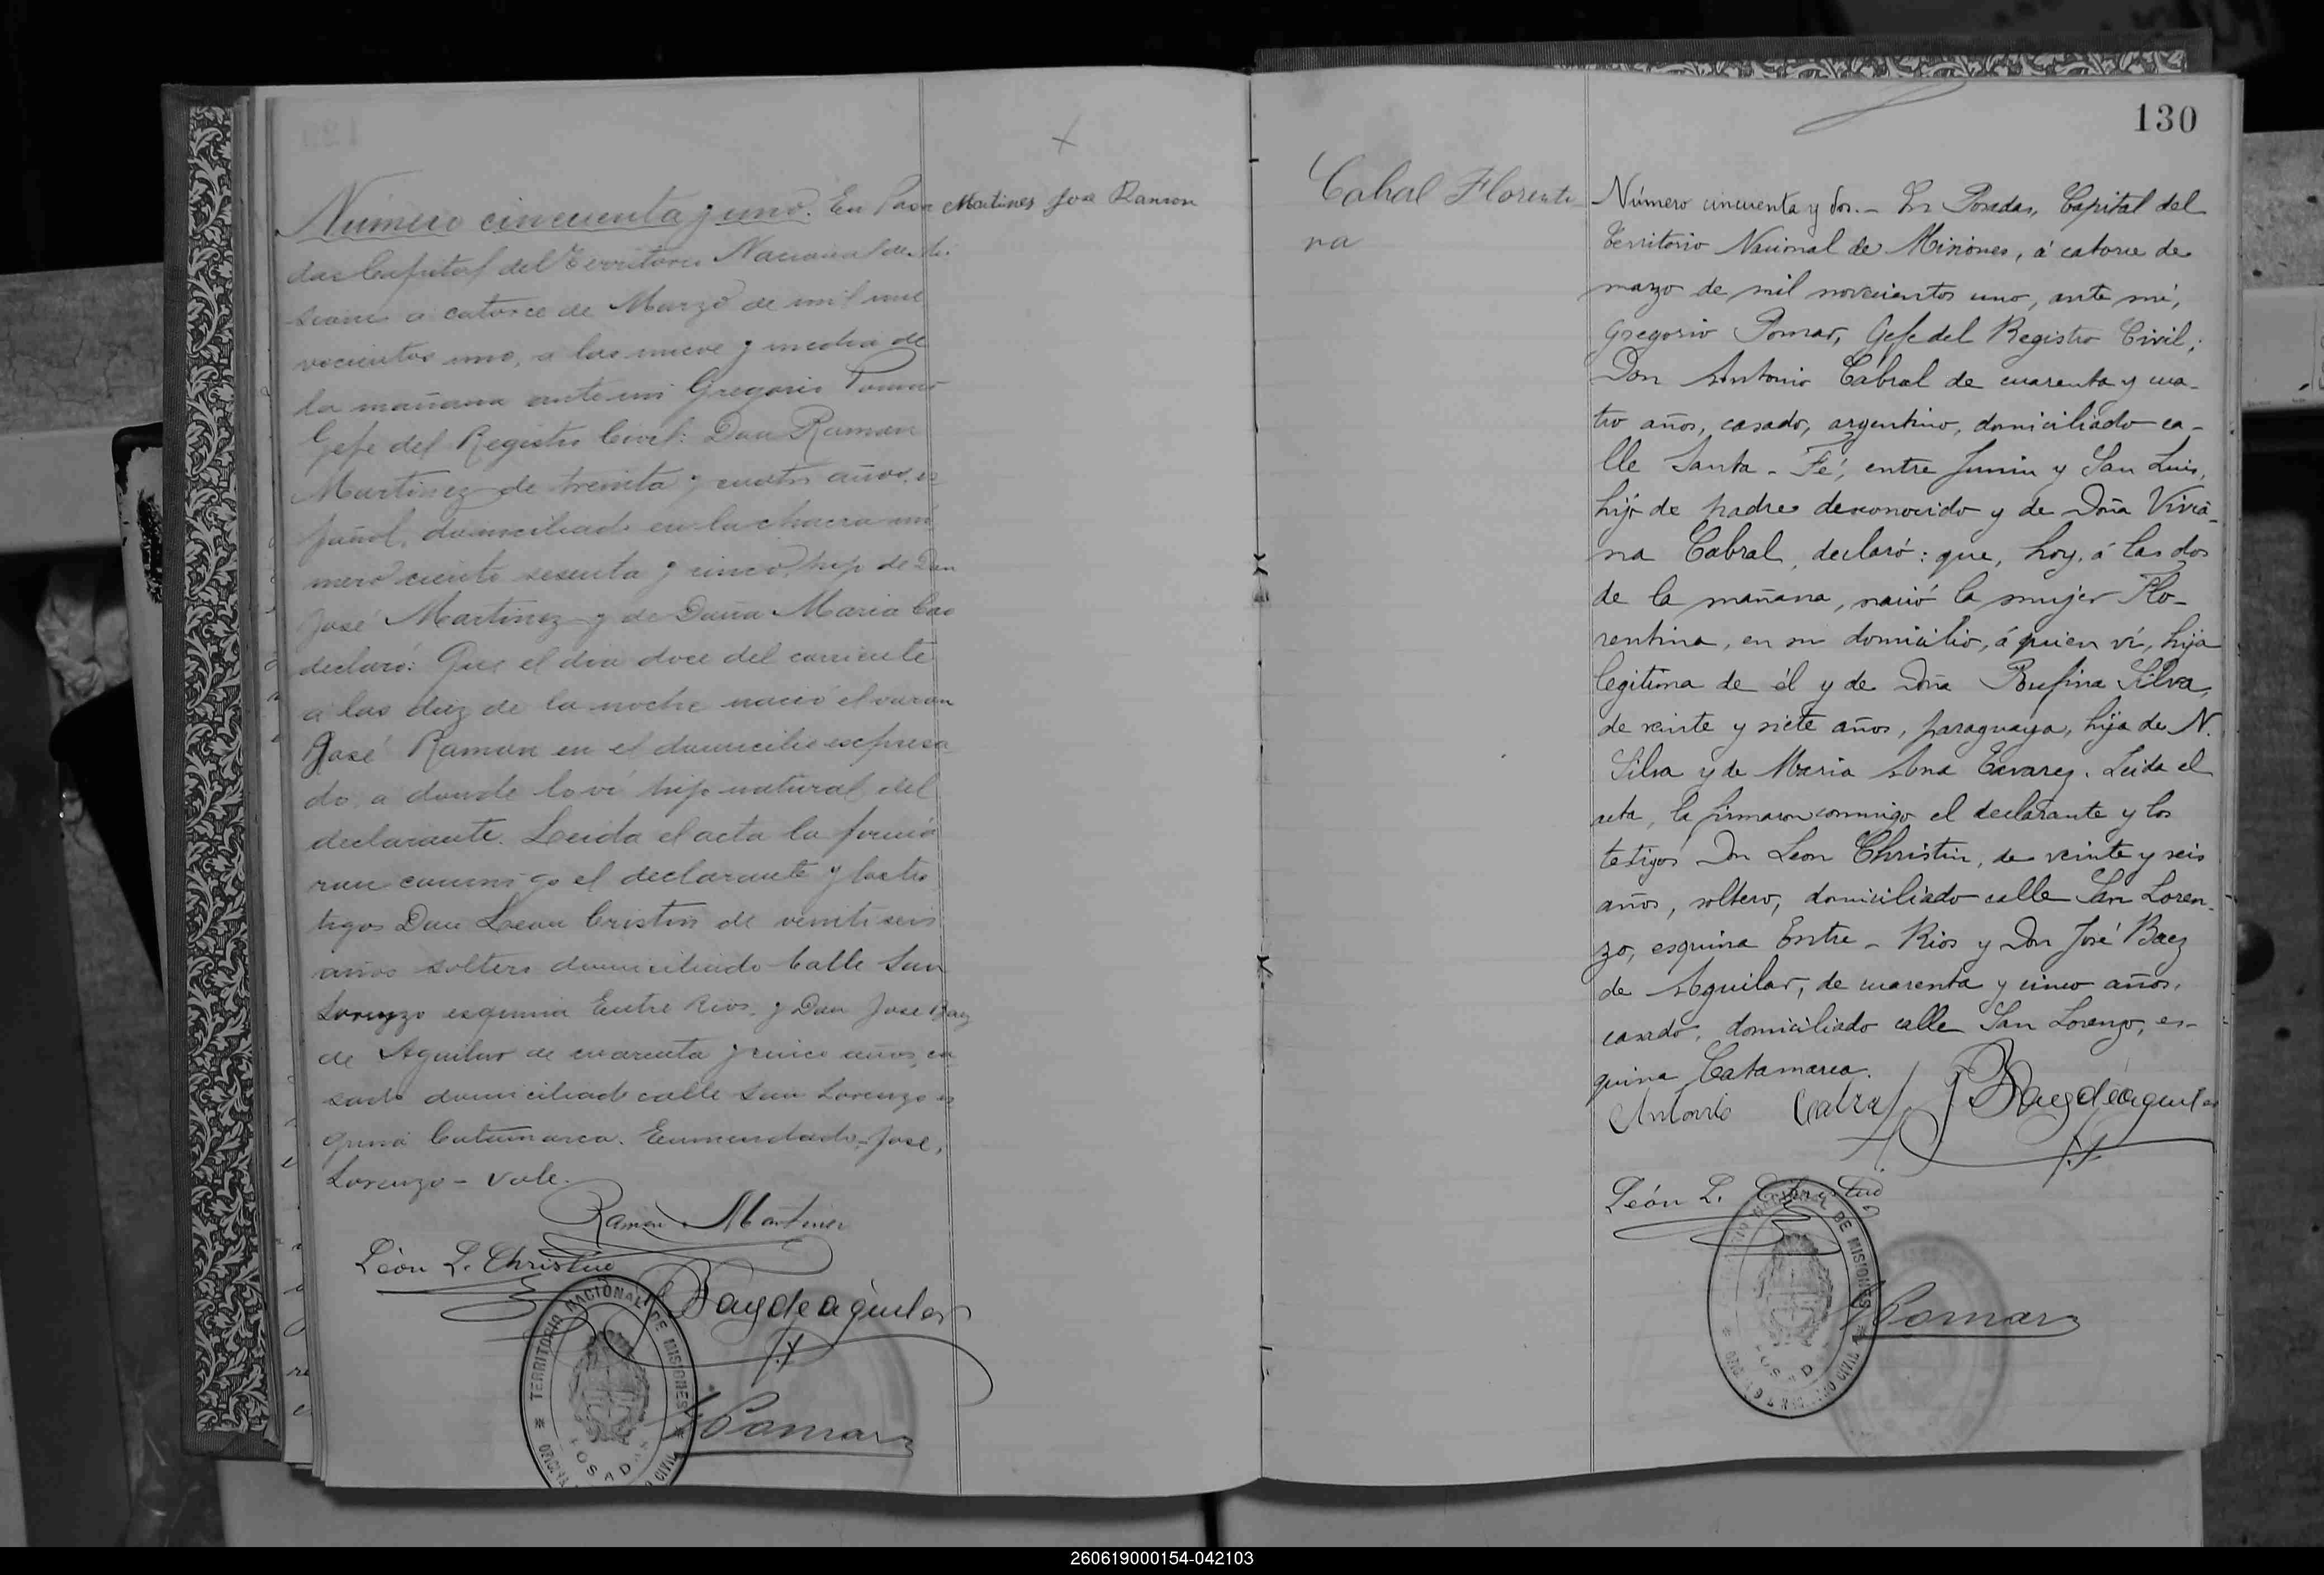 Número cincuenta y uno. En Posa
Martinez José Ramon
das Capital del Territorio Nacional de Mi
siones a catorce de Marzo de mil nue
vecientos uno, a las nueve y media de
la mañana ante mi Gregorio Pomar
Gefe del Registro Civil: Don Ramon
Martinez de treinta y cuatro años, es
pañol, domiciliado en la chacra nú
mero ciento sesenta y cinco, hijo de Don
José Martinez y de Doña Maria Cao
declaró: Que el dia doce del corriente
a las diez de la noche nació el varon
José Ramon en el domicilio espresa
do, a donde lo ví hijo natural del
declarante. Leida el acta la firma
ron conmigo el declarante y los tes
tigos Don Leon Cristin de veinte seis
años soltero domiciliado Calle San
Lorenzo esquina Entre Rios, y Don José Baez
de Aguilar de cuarenta y cinco años, ca
sado domiciliado calle San Lorenzo es
quina Catamarca. Enmendado-José,
Lorenzo - vale.
Ramón Martinez
León L. Christin
J Baez de aguilar
TERRITORIO NACIONAL DE MISIONES
POSADAS
CIVIL
G Pomar
130
Cabral Florenti-
na
Número cincuenta y dos.- En Posadas, Capital del
Territorio Nacional de Misiones, á catorce de
marzo de mil novecientos uno, ante mí,
Gregorio Pomar, Gefe del Registro Civil;
Don Antonio Cabral de cuarenta y cua-
tro años, casado, argentino, domiciliado ca-
lle Santa-Fé, entre Junin y San Luis,
hijo de padre desconocido y de Doña Vivia-
na Cabral, declaró: que, hoy, á las dos
de la mañana, nació la mujer Flo-
rentina, en su domicilio, á quien ví, hija
legitima de él y de Doña Rufina Silva,
de veinte y siete años, paraguaya, hija de N.
Silva y de Maria Ana Tavarez. Leida el
acta, la firmaron conmigo el declarante y los
testigos Don Leon Christin, de veinte y seis
años, soltero, domiciliado calle San Loren-
zo, esquina Entre-Rios y Don José Baez
de Aguilar, de cuarenta y cinco años,
casado, domiciliado calle San Lorenzo, es-
quina Catamarca.
Antonio Cabral
J Baez de aguilar
León L. Christin
DE MISIONES
CIVIL
G Pomar
260619000154-042103